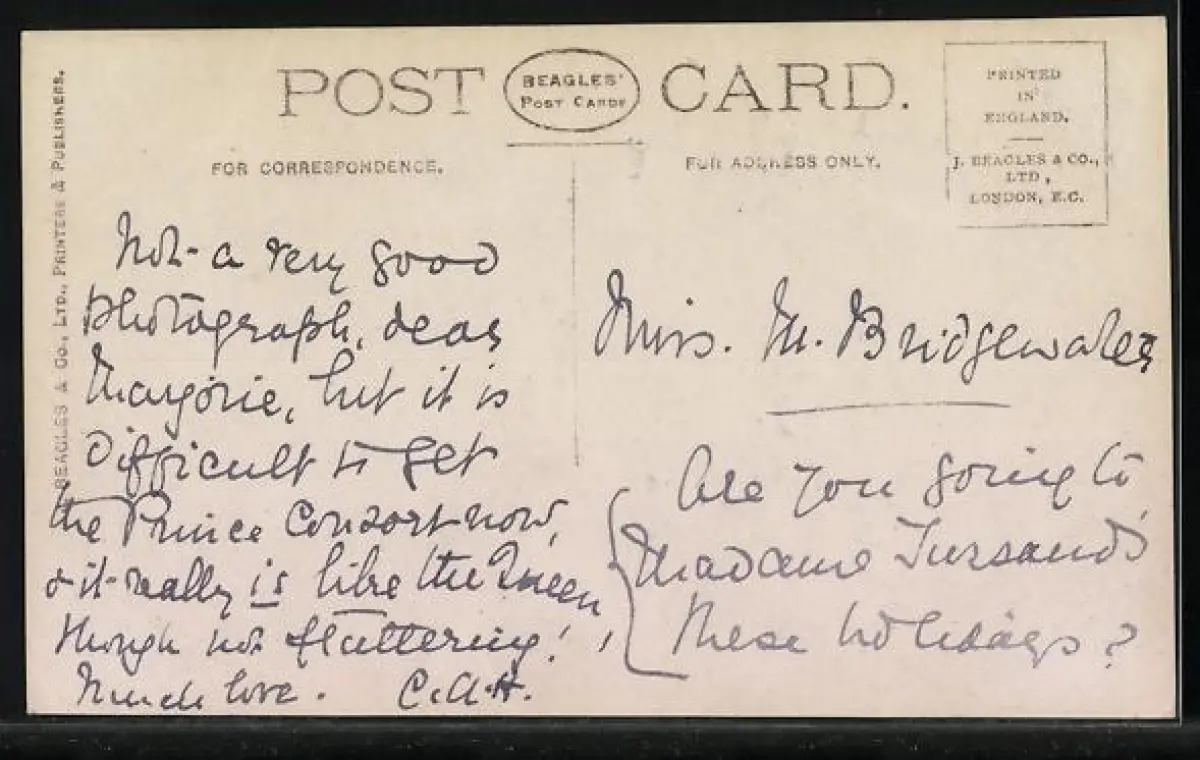 POST CARD.
BEAGLES'
POST CARDS
PRINTED
IN
ENGLAND.
J. BEAGLES & CO.,
LTD,
LONDON, E.C.
BEAGLES & CO., LTD., PRINTERS & PUBLISHERS.
FOR CORRESPONDENCE.
FOR ADDRESS ONLY.
Not a very good
photograph, dear
Marjorie, but it is
difficult to get
the Prince Consort now,
& it really is like the Queen
though not flattering!
Much love. C.A.H.
Miss. M. Bridgewater
Are you going to
Madame Tussaud's
these holidays?